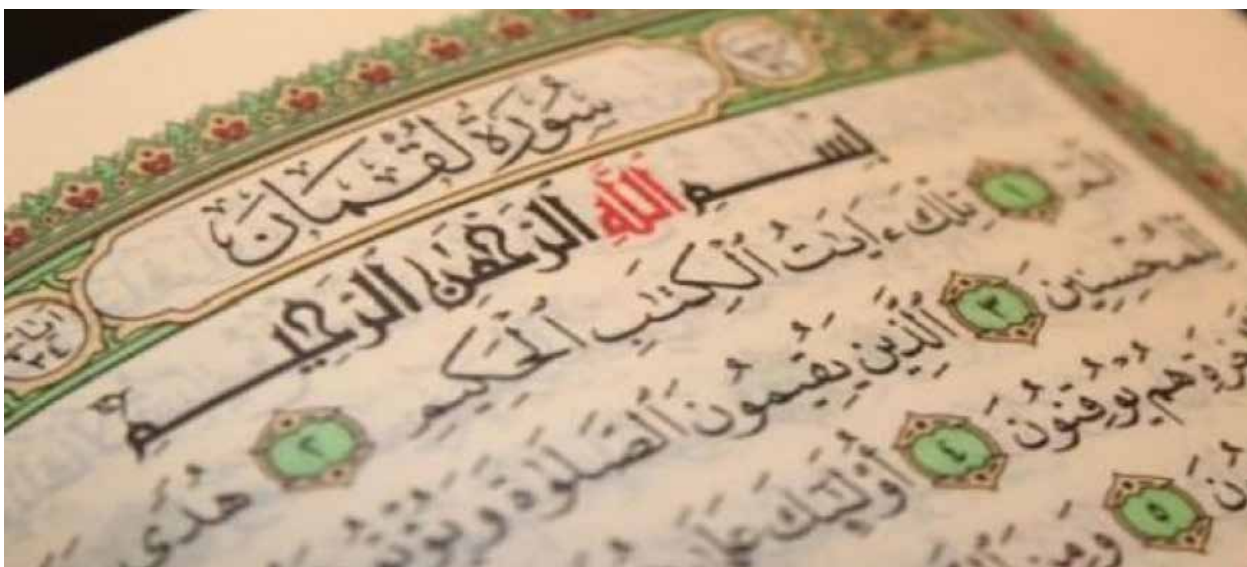 سُورَةُ لُقْمَانَ
آيَاتُهَا ٣٤
بِسْمِ ٱللَّهِ ٱلرَّحْمَٰنِ ٱلرَّحِيمِ
الٓمٓ ١ تِلْكَ ءَايَٰتُ ٱلْكِتَٰبِ ٱلْحَكِيمِ ٢ هُدًى
لِّلْمُحْسِنِينَ ٣ ٱلَّذِينَ يُقِيمُونَ ٱلصَّلَوٰةَ
هُمْ يُوقِنُونَ ٤ أُو۟لَٰٓئِكَ
٥ وَمِنَ